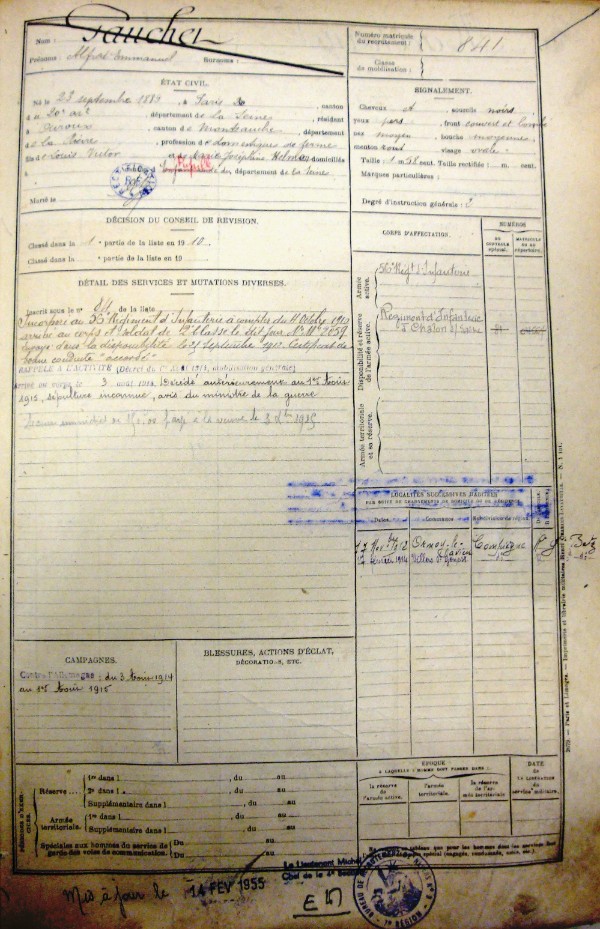 Nom : Gaucher
Prénoms : Alfred Emmanuel Surnoms :
Numéro matricule du recrutement : 841
Classe de mobilisation :
ÉTAT CIVIL.
Né le 23 septembre 1889, à Paris 20, canton
d 20e arr, département de la Seine, résidant
à Ouroux, canton de Montsauche, département
de la Nièvre, profession de domestique de ferme
fils de Louis Victor et de Marie Joséphine domiciliés
à, département de la Seine.
Marié le
SIGNALEMENT.
Cheveux, sourcils noirs
yeux pers, front couvert et
nez moyen, bouche moyenne,
menton rond, visage ovale.
Taille 1 m. 58 cent. Taille rectifiée : m. cent.
Marques particulières :
Degré d'instruction générale : 2
DÉCISION DU CONSEIL DE REVISION.
Classé dans la 1 e partie de la liste en 1910.
Classé dans la e partie de la liste en 19
DÉTAIL DES SERVICES ET MUTATIONS DIVERSES.
Inscrit sous le n° 84 de la liste
Incorporé au 56 Régiment d'Infanterie à compter du Octobre 1910
arrivé au corps et soldat de 2e classe le dit jour N° Mle 2859
Envoyé dans la disponibilité le 25 septembre 1912. Certificat de
bonne conduite "accordé"
RAPPELÉ A L'ACTIVITÉ (Décret du 1er Août 1914, mobilisation générale)
Arrivé au corps le 3 août 1914. Décédé antérieurement au 1er Août
1915, sépulture inconnue, avis du ministre de la guerre
Secours de 150,00 payé à la veuve le 3 1915
CORPS D'AFFECTATION.
NUMÉROS
Armée active.
56e Régt d'Infanterie
Disponibilité et réserve de l'armée active.
Régiment d'Infanterie
d' Chalon s/ Saône
Armée territoriale et sa réserve.
LOCALITÉS SUCCESSIVES HABITÉES
PAR SUITE DE CHANGEMENTS DE DOMICILE OU DE RÉSIDENCE.
Dates. Communes. Subdivision de région.
17 Nov 1912 Ormoy-le-Davien Compiègne
février 1914 Villers St Genest
CAMPAGNES.
Contre l'Allemagne : du 3 Août 1914
au 1er Août 1915
BLESSURES, ACTIONS D'ÉCLAT,
DÉCORATIONS, ETC.
Réserve....
1re dans l, du au
2e dans l, du au
Supplémentaire dans l, du au
Armée territoriale.
1re dans l, du au
Supplémentaire dans l, du au
Spéciales aux hommes du service de garde des voies de communication.
Du au
Du au
ÉPOQUE
A LAQUELLE L'HOMME DOIT PASSER DANS :
la réserve de l'armée active.
l'armée territoriale.
la réserve de l'armée territoriale.
DATE de la libération du service militaire.
Le Lieutenant Michel
Chef de la 4e Section
Mis à jour le 14 FEV 1955